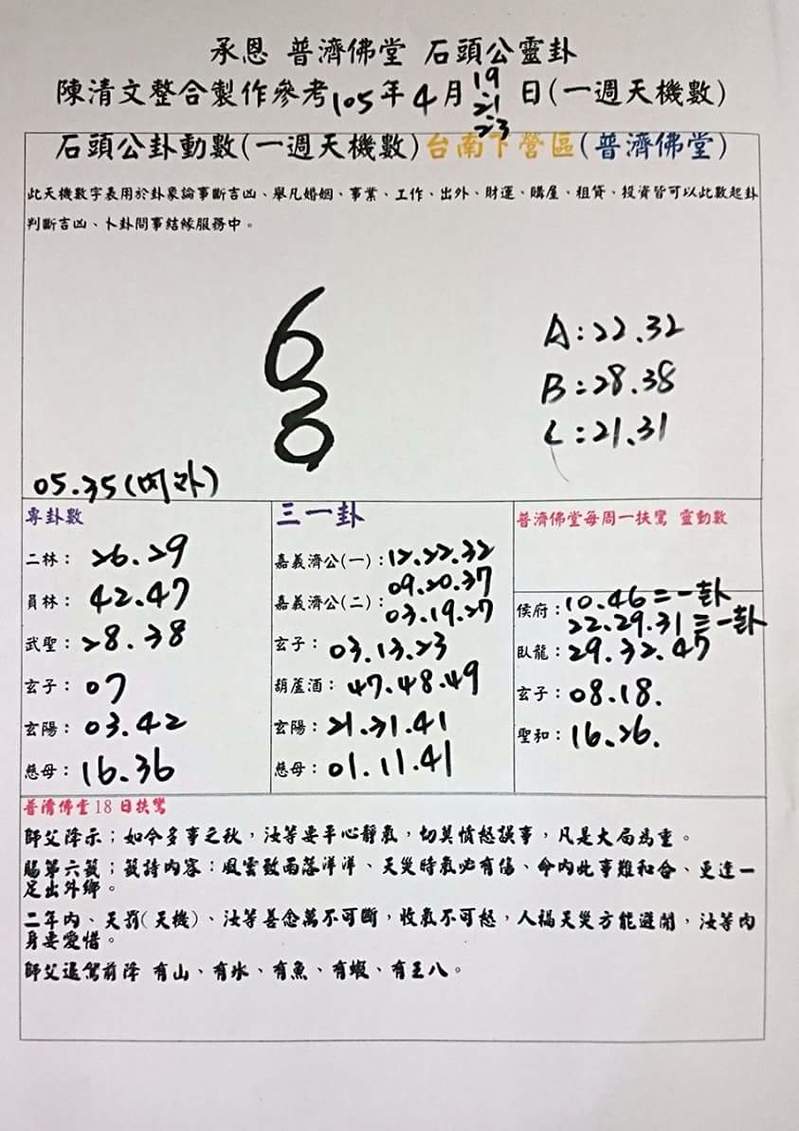 承恩 普濟佛堂 石頭公靈卦
陳清文整合製作參考105年4月19.21.23日(一週天機數)
石頭公卦動數(一週天機數)台南下營區(普濟佛堂)
此天機數字表用於卦象論事斷吉凶、舉凡婚姻、事業、工作、出外、財運、購屋、租賃、投資皆可以此數起卦
判斷吉凶、卜卦問事結緣服務中。
A:22.32
B:28.38
C:21.31
05.35
專卦數
二林: 26.29
員林: 42.47
武聖: 28.38
玄子: 07
玄陽: 03.42
慈母: 16.36
三一卦
嘉義濟公(一):12.22.32
09.20.37
嘉義濟公(二):03.19.27
玄子: 03.13.23
葫蘆酒: 47.48.49
玄陽: 21.31.41
慈母: 01.11.41
普濟佛堂每周一扶鸞 靈動數
侯府:10.46二一卦
22.29.31三一卦
臥龍:29.32.47
玄子:08.18.
聖和:16.26.
普濟佛堂18日扶鸞
師父降示;如今多事之秋,汝等要平心靜氣,切莫憤怒誤事,凡是大局為重。
賜第六籤;籤詩內容:風雲致雨落洋洋、天災時氣必有傷、命內此事難和合、更逢一
足出外鄉。
二年內、天罰(天機)、汝等善念萬不可斷,收氣不可怒,人禍天災方能避開,汝等肉
身要愛惜。
師父退駕前降 有山、有水、有魚、有蝦、有王八。